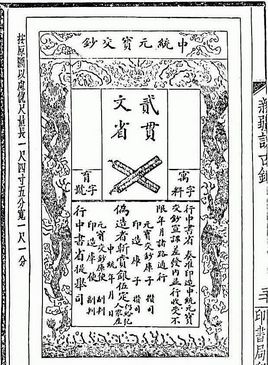 新疆訪古錄
印書局
中統元寶交鈔
貳貫
文省
字料
字號
行中書省 奏准印造中統元寶
交鈔宣課差發內並行收受不
限年月諸路通行
元寶交鈔庫子 攢司
印造庫子 攢司
偽造者斬賞銀伍定 仍給犯人家產
中統 年 月 日
元寶交鈔庫使 副判
印造庫使 副判
行中書省提舉司
按原圖以慮俿尺量長一尺四寸五分寬一尺一分